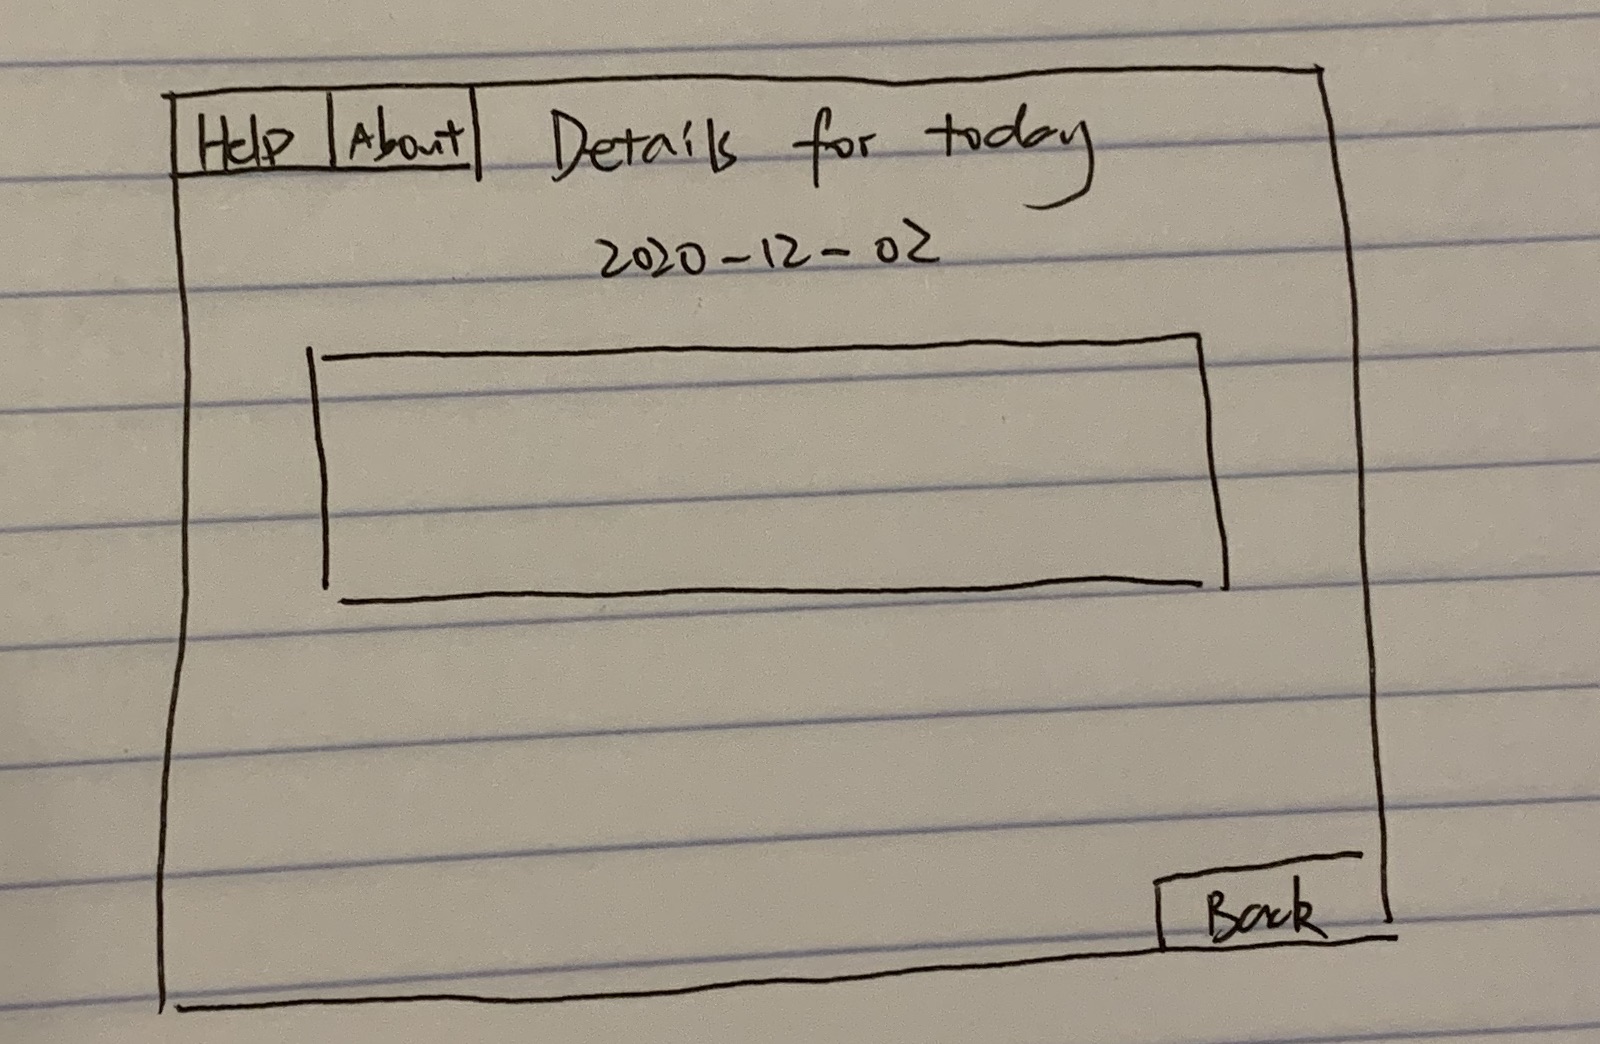 Help About Details for today
2020-12-02
Back